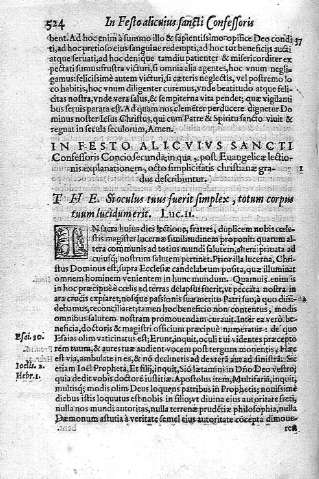 524 In Festo alicuius sancti Confessoris
bent. Ad hoc enim à summo illo & sapientissimo opifice Deo condi
ti, ad hoc pretioso eius sanguine redempti, ad hoc tot beneficijs aucti
atque seruati, ad hoc denique tamdiu patienter & misericorditer ex
pectati sumus: frustra victuri, si omnia alia agentes, hoc vnum negli-
gamus: felicissimè autem victuri, si cæteris neglectis, vel postremo lo
co habitis, hoc vnum diligenter curemus, vnde beatitudo atque feli-
citas nostra, vnde vera salus, & sempiterna vita pendet, quæ vigilanti
bus seruis parata est. Ad quam nos clementer perducere dignetur Do
minus noster Iesus Christus, qui cum Patre & Spiritu sancto viuit &
regnat in secula seculorum, Amen.
IN FESTO ALICVIVS SANCTI
Confessoris Concio secunda, in qua, post Euangelicæ lectio-
nis explanationem, octo simplicitatis christianæ gra-
dus describuntur.
THE. Si oculus tuus fuerit simplex, totum corpus
tuum lucidum erit. LVC. 11.
IN sacra huius diei lectione, fratres, duplicem nobis cœle-
stis magister lucernæ similitudinem proponit: quarum al-
tera communis ad totius mundi salutem, altera priuata ad
cuiusq; nostrum salutem pertinet. Prior illa lucerna, Christus
Dominus est, supra Ecclesiæ candelabrum posita, quæ illuminat
omnem hominem venientem in hunc mundum. Quamuis enim is
in hoc præcipuè cœlis ad terras delapsus fuerit, vt peccata nostra in
ara crucis expiaret, nosque passionis suæ meritis Patri suo, à quo diui-
debamur, reconciliaret; tamen hoc beneficio non contentus, modis
omnibus salutem nostram promouendam curauit. Inter ea verò be-
neficia, doctoris & magistri officium præcipuè numeratur: de quo
Esai. 30. Esaias olim vaticinatus est; Erunt, inquit, oculi tui videntes præcepto
rem tuum, & aures tuæ audient vocem post tergum monentis; Hæc
est via, ambulate in ea, & nõ declinetis ad dexterã aut ad sinistrã. Sic
Ioelis. 2. etiam Ioel Propheta, Et filij, inquit, Siõ lætamini in Dño Deo vestro;
Hebr. 1. quia dedit vobis doctorẽ iustitiæ. Apostolus item, Multifariã, inquit,
multisq; modis olim Deus loquens patribus in Prophetis; nouissimè
diebus istis loquutus est nobis in filio, vt diuina eius autoritate freti,
nulla nos mundi autoritas, nulla terrenæ prudẽtiæ philosophia, nulla
Dæmonum astutia à veritate semel eius autoritate cõcepta dimoue-